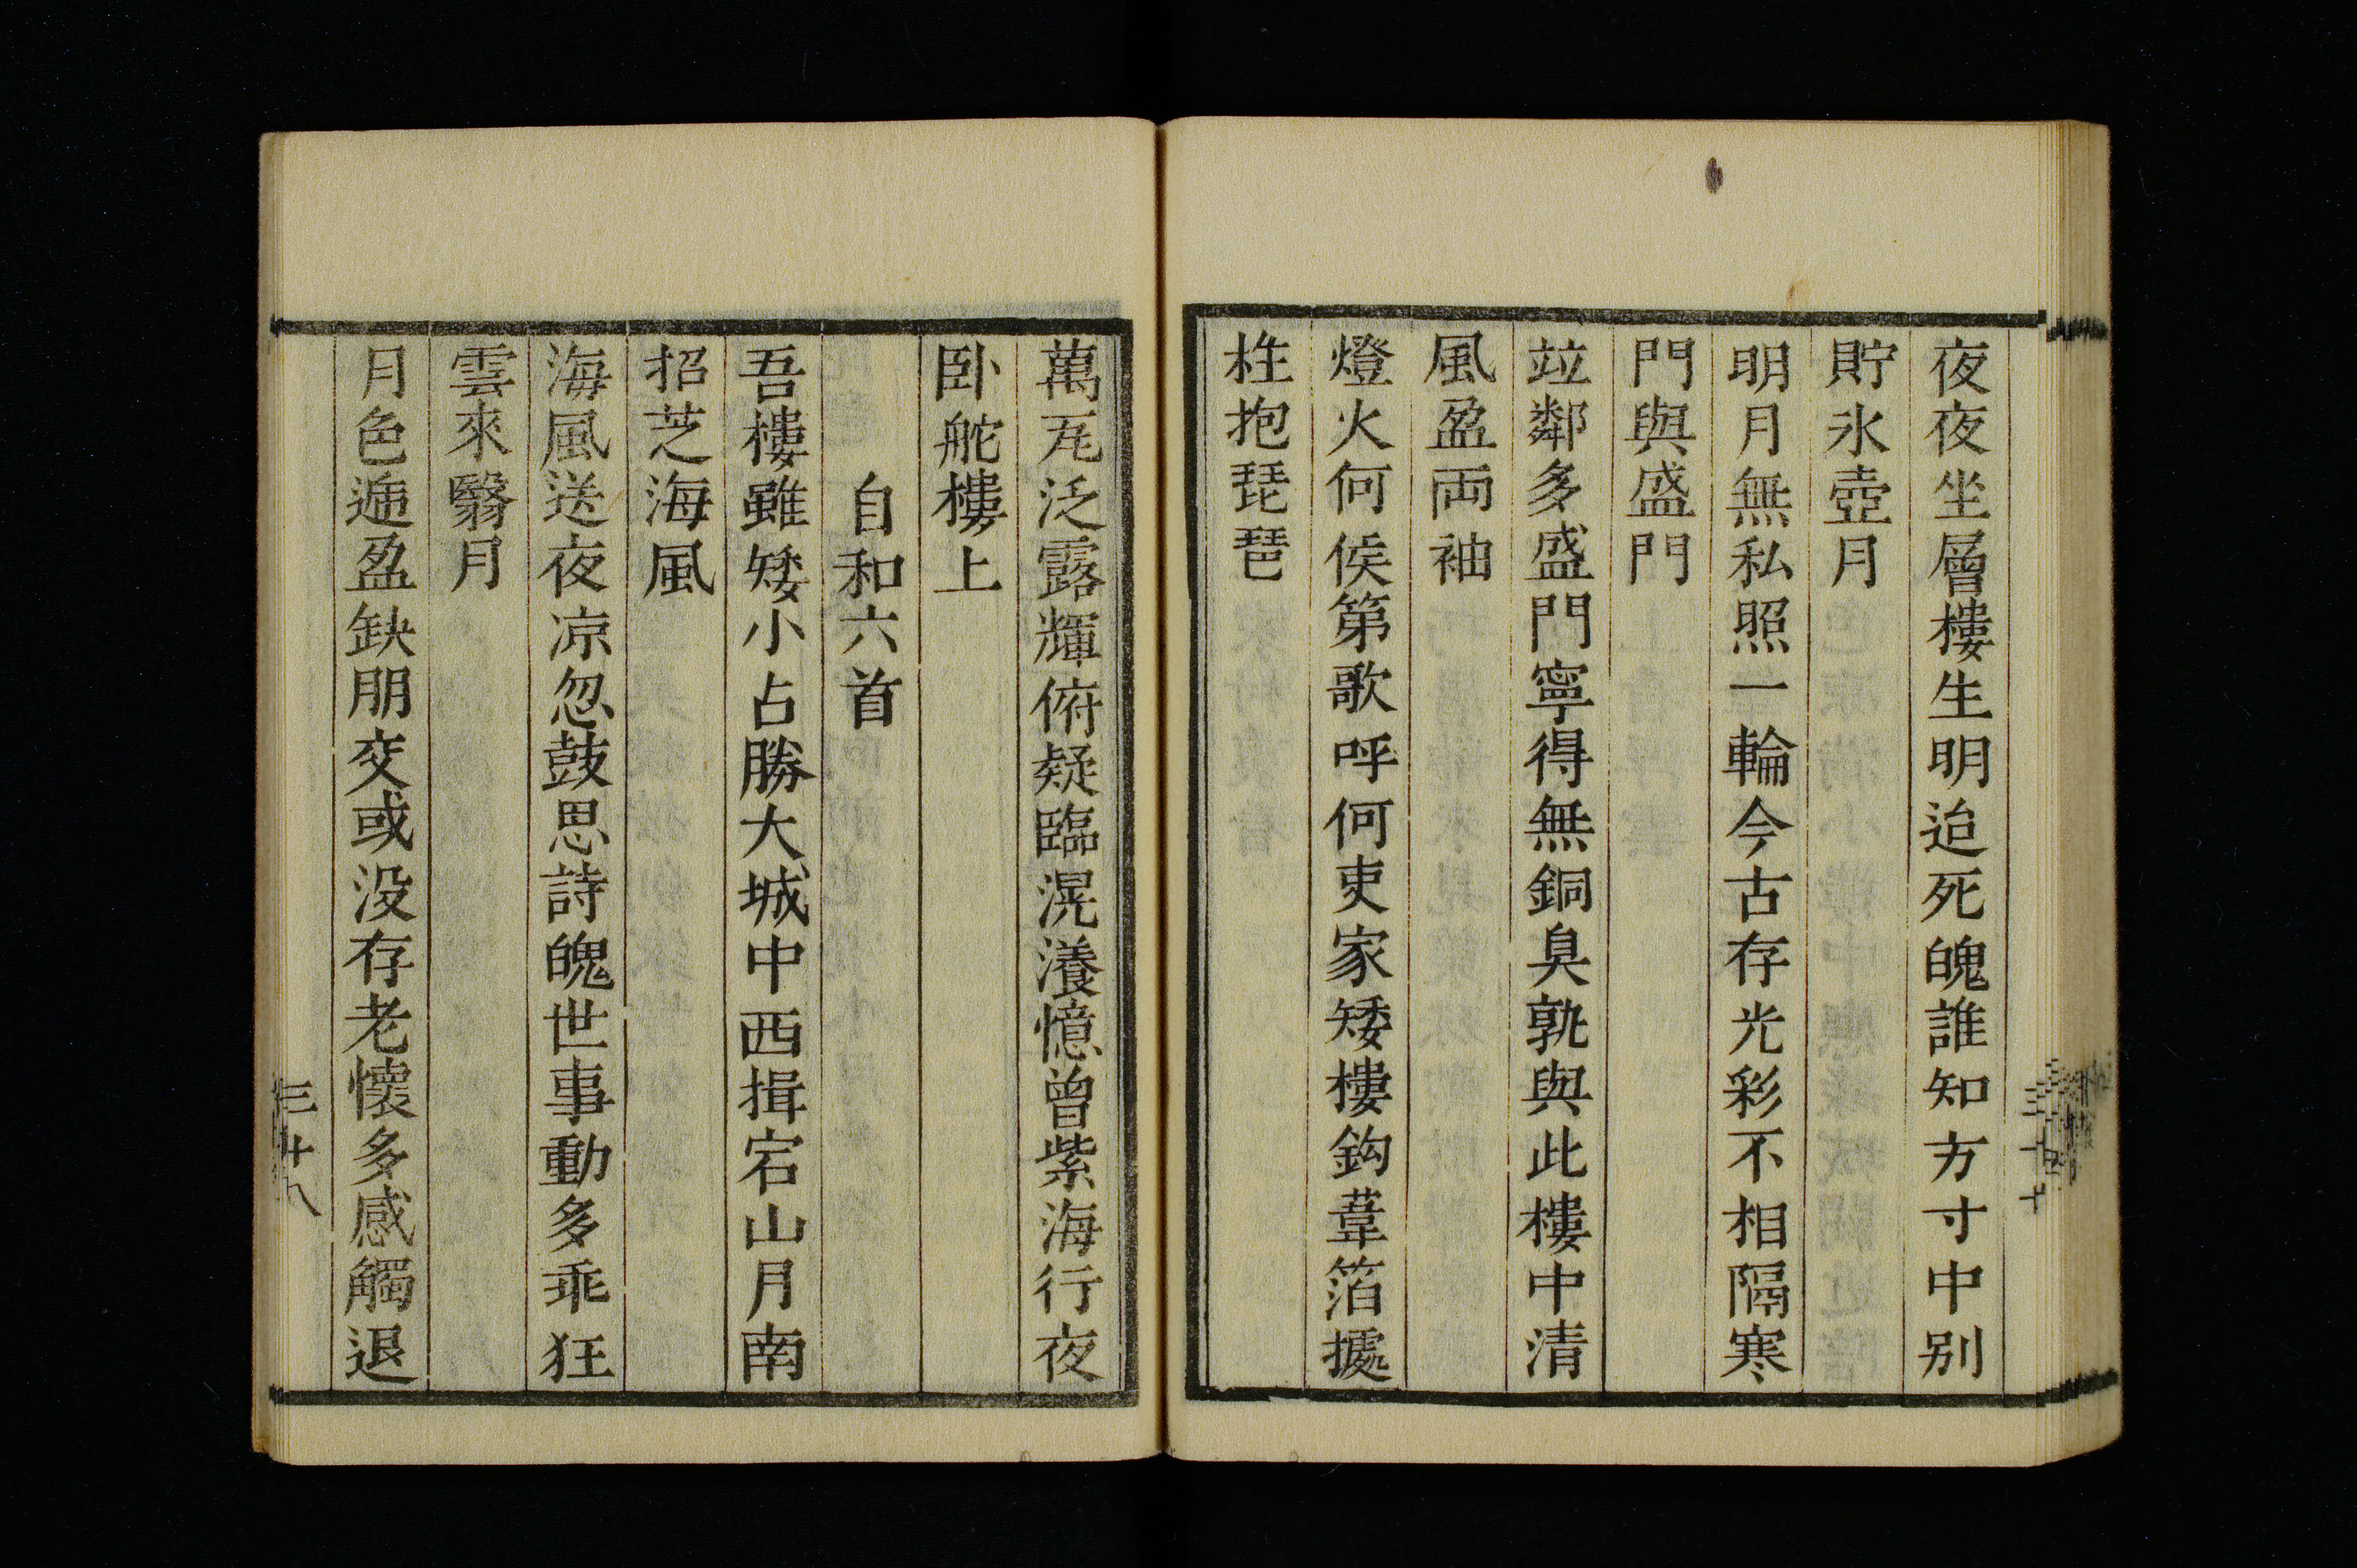 夜夜坐層樓生明迨死魄誰知方寸中別
貯氷壺月
明月無私照一輪今古存光彩不相隔寒
門與盛門
竝鄰多盛門寧得無銅臭孰與此樓中清
風盈両袖
燈火何侯第歌呼何吏家矮樓鈎葦箔據
柱抱琵琶
萬瓦泛露輝俯疑臨滉瀁憶曾紫海行夜
臥舵樓上
自和六首
吾樓雖矮小占勝大城中西揖宕山月南
招芝海風
海風送夜凉忽鼓思詩魄世事動多乖狂
雲來翳月
月色遞盈缺朋交或没存老懷多感觸退
三十八